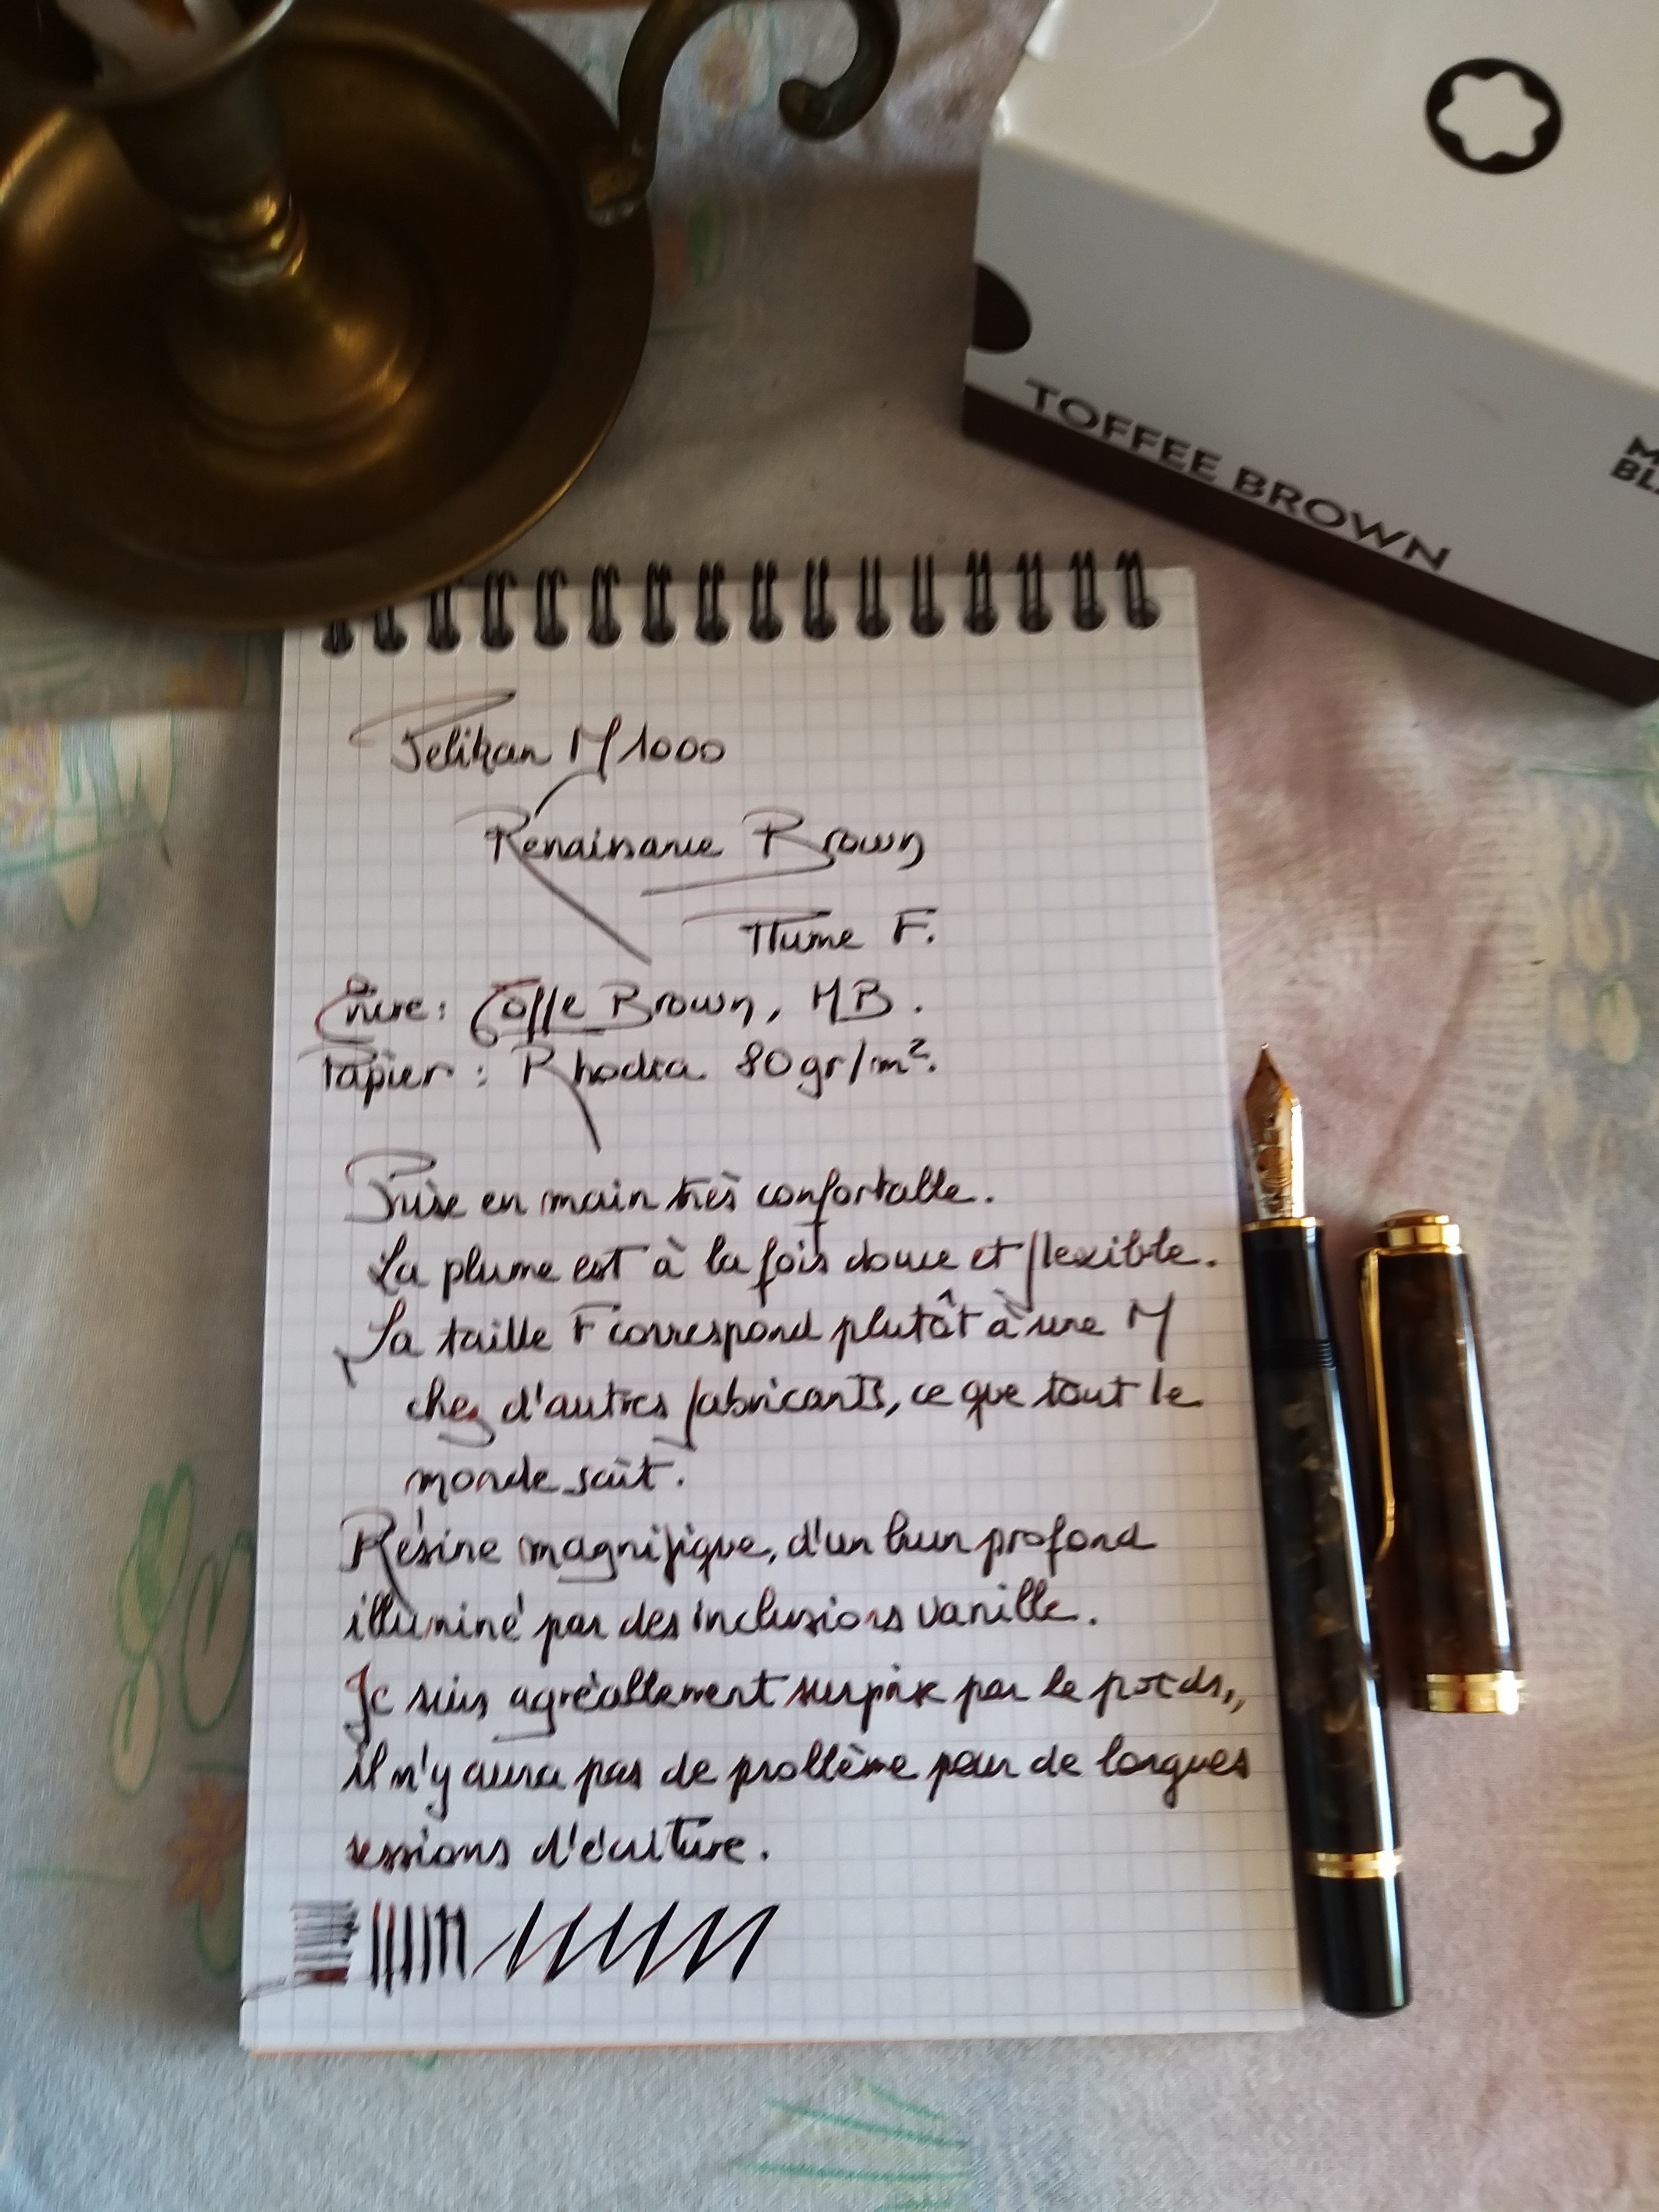 TOFFEE BROWN
M
BL
Pelikan M1000
Renaissance Brown
Plume F.
Encre : Toffe Brown, MB.
Papier : Rhodia 80gr/m².
Prise en main très confortable.
La plume est à la fois douce et flexible.
La taille F correspond plutôt à une M
chez d'autres fabricants, ce que tout le
monde sait.
Résine magnifique, d'un brun profond
illuminé par des inclusions vanille.
Je suis agréablement surprix par le poids,
il n'y aura pas de problème pour de longues
sessions d'écriture.